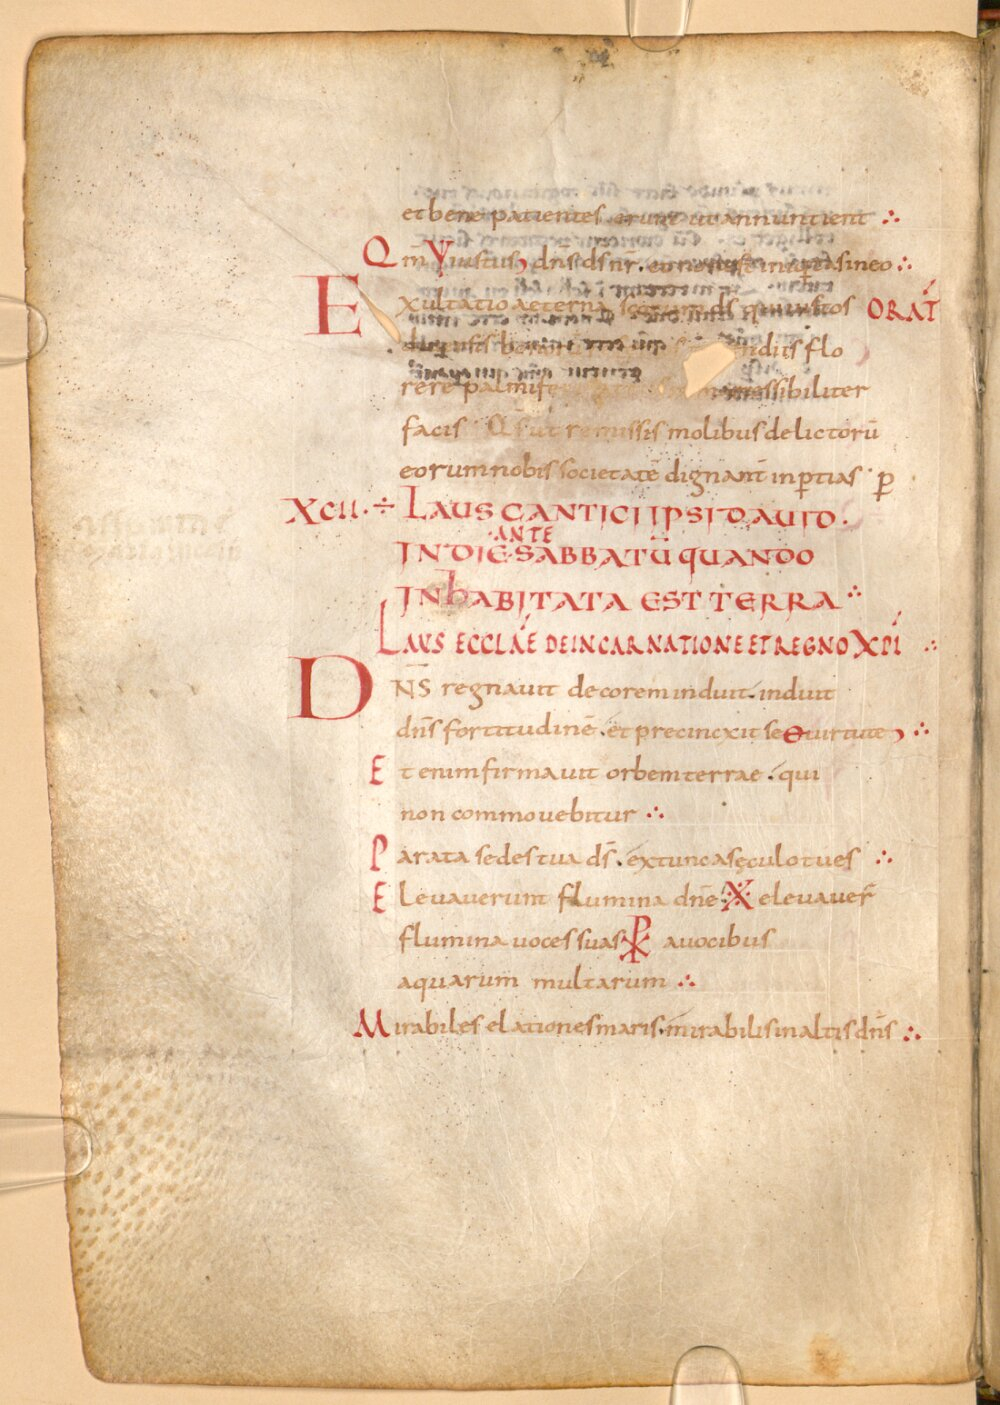 et bene patientes erunt ut annuntient ∴
Qm̄ iustus dn̄s ds̄ nr̄. et non est iniq̄tas in eo ∴
Exultatio aeterna ds̄ iustos ORAT̄
flo
rere palmife inaccessibiliter
facis remissis molibus delictorū
eorum nobis societatē dignant̄ inp̄tias p̄
XCII. ÷ LAUS CANTICI IPSI DAUID.
IN DIE ANTE SABBATŪ QUANDO
INHABITATA EST TERRA ∴
LAUS ECCLAE DE INCARNATIONE ET REGNO XPI ∴
DN̄S regnauit decorem induit. induit
dn̄s fortitudinē. et precincxit se uirtute ∴
Et enim firmauit orbem terrae. qui
non commouebitur ∴
Parata sedes tua ds̄. ex tunc a sęculo tu es ∴
Eleuauerunt flumina dn̄e elevauer̄
flumina uoces suas ☧ a uocibus
aquarum multarum ∴
Mirabiles elationes maris. mirabilis in altis dn̄s ∴